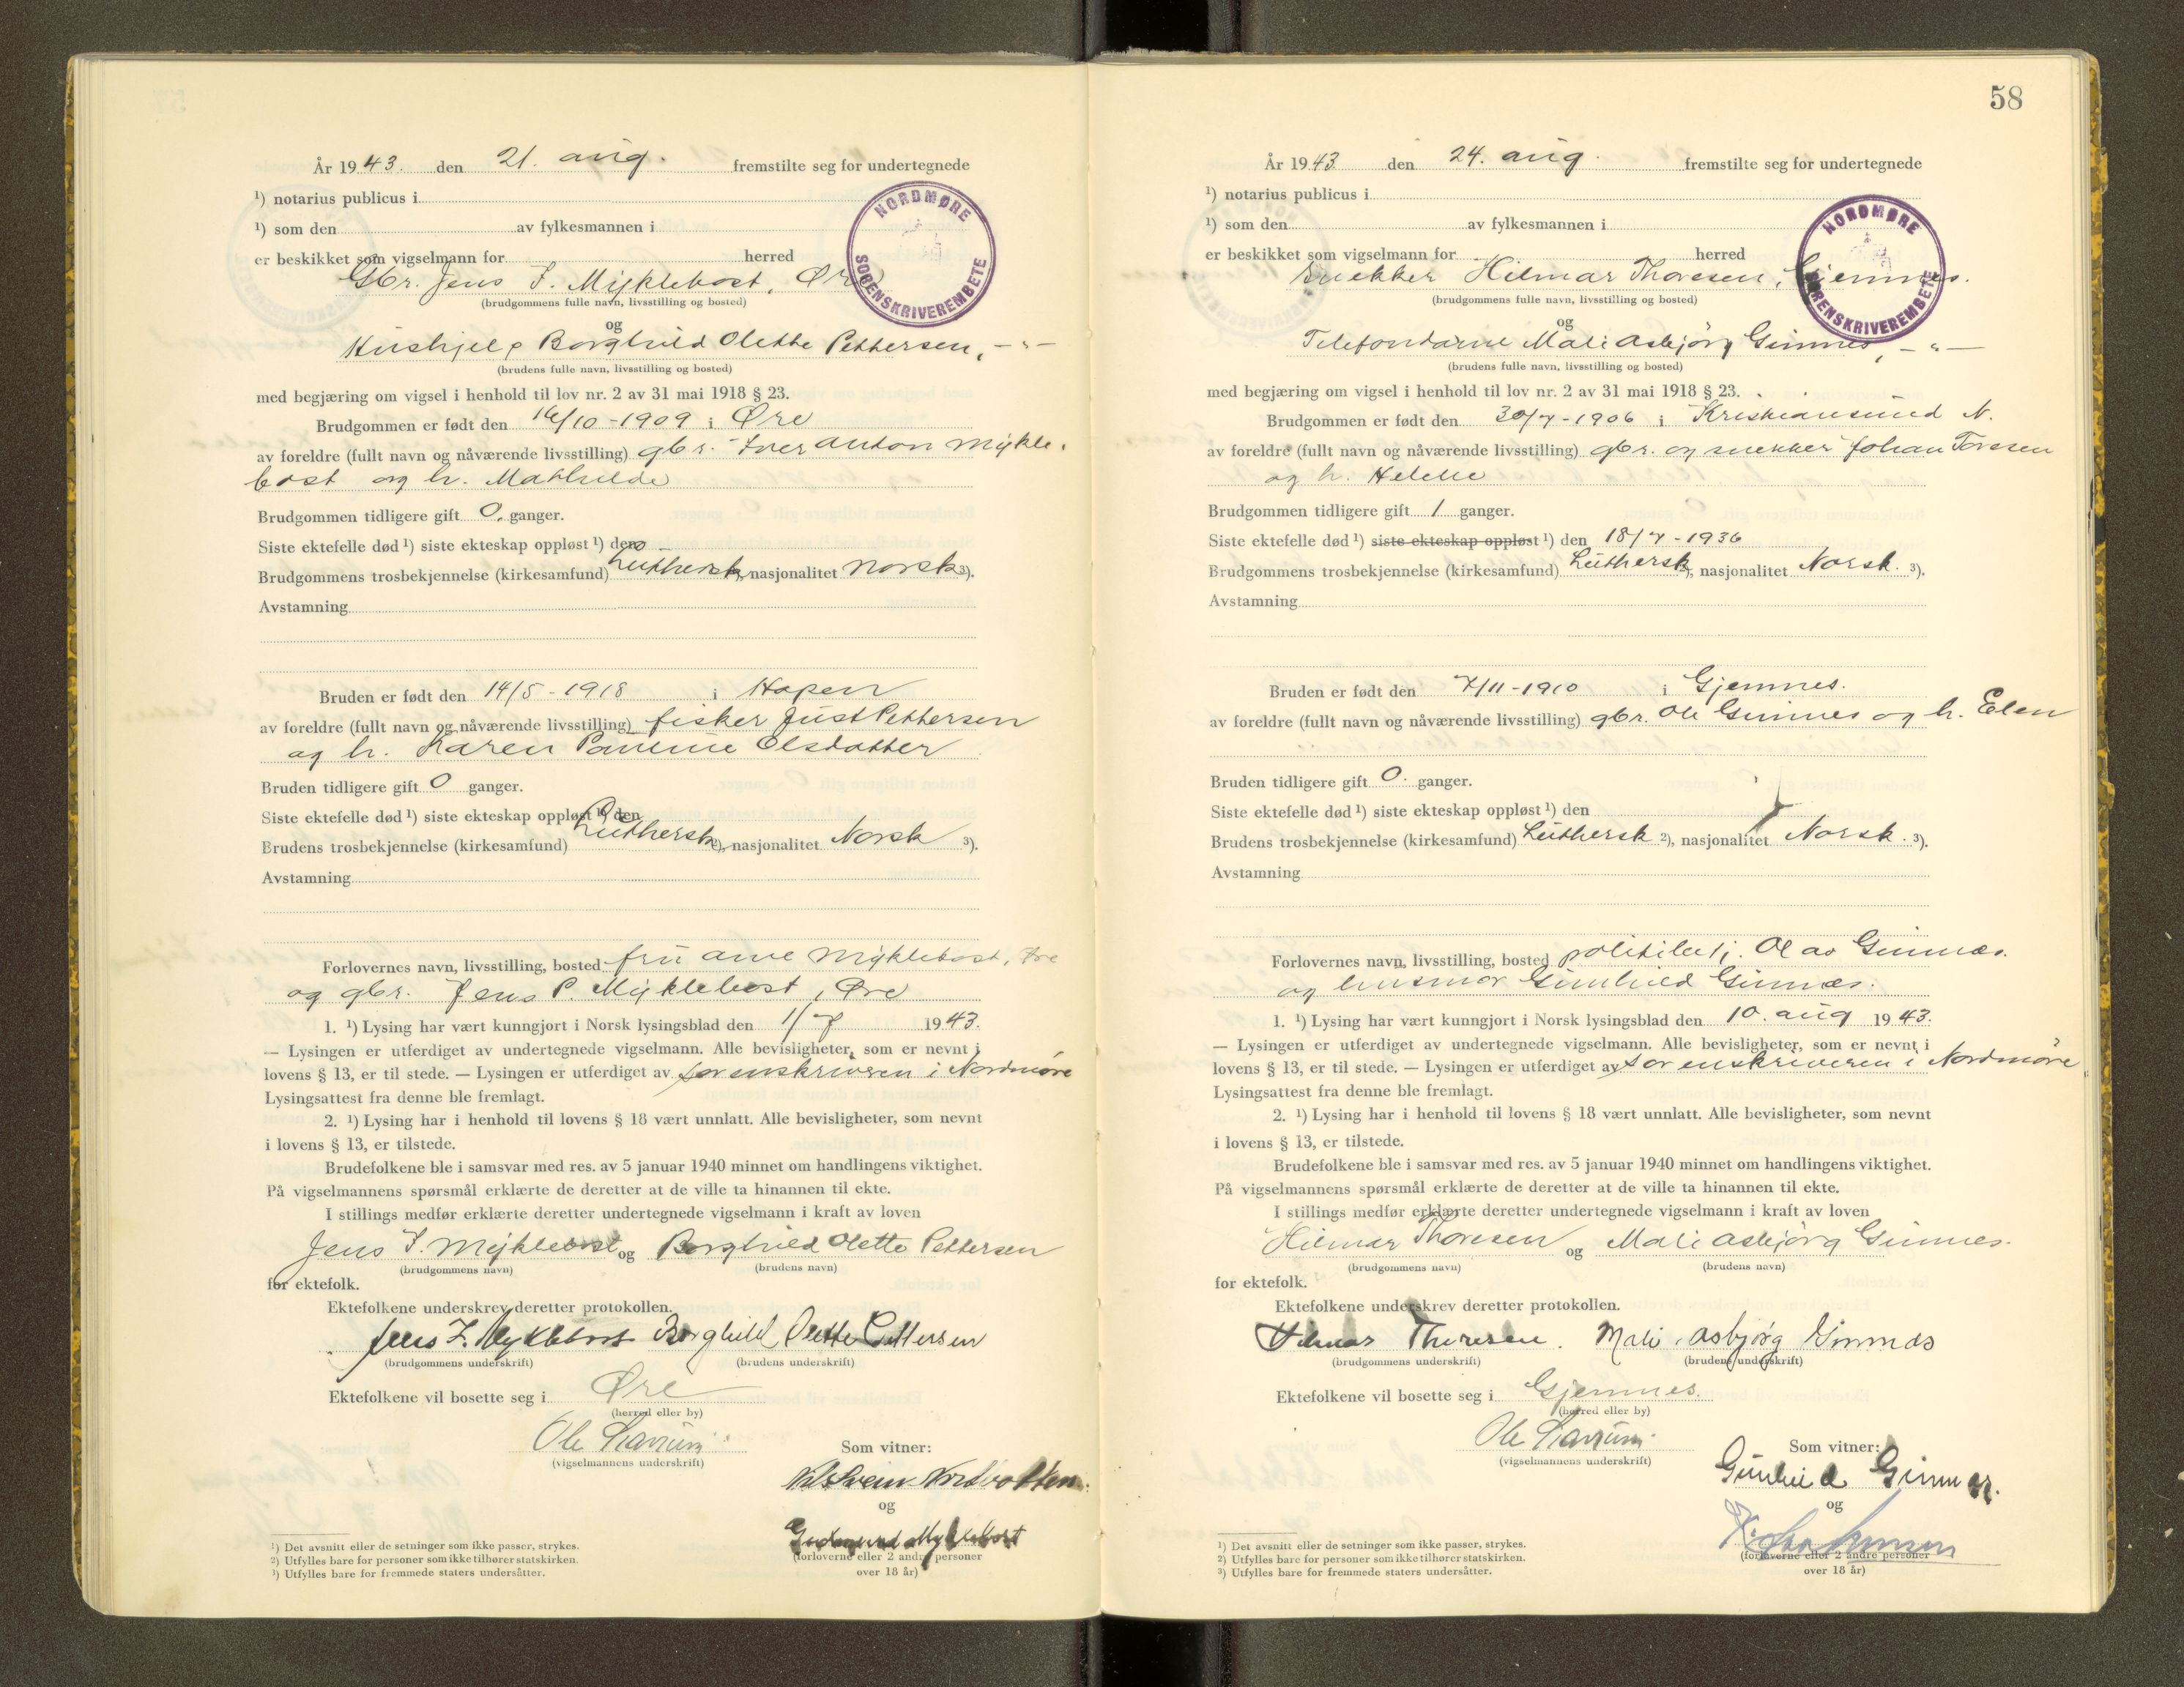 År 1943. den 21. aug. fremstilte seg for undertegnede
¹) notarius publicus i
¹) som den av fylkesmannen i
er beskikket som vigselmann for herred
NORDMØRE SORENSKRIVEREMBETE
Gbr. Jens I. Myklebost, Øre
(brudgommens fulle navn, livsstilling og bosted)
og
Hushjelp Borghild Olette Pettersen, -"-
(brudens fulle navn, livsstilling og bosted)
med begjæring om vigsel i henhold til lov nr. 2 av 31 mai 1918 § 23.
Brudgommen er født den /10-1909 i Øre
av foreldre (fullt navn og nåværende livsstilling) gbr. Iver Anton Mykle-
bost og h. Mathilde
Brudgommen tidligere gift 0. ganger.
Siste ektefelle død ¹) siste ekteskap oppløst ¹) den
Brudgommens trosbekjennelse (kirkesamfund) Luthersk, nasjonalitet Norsk ³).
Avstamning
Bruden er født den 14/5-1918 i Hopen
av foreldre (fullt navn og nåværende livsstilling) fisker Just Pettersen
og h. Karen Olsdatter
Bruden tidligere gift 0 ganger.
Siste ektefelle død ¹) siste ekteskap oppløst ¹) den
Brudens trosbekjennelse (kirkesamfund) Luthersk ²), nasjonalitet Norsk ³).
Avstamning
Forlovernes navn, livsstilling, bosted fru Myklebost, Øre
og gbr. Jens P. Myklebost, Øre
1. ¹) Lysing har vært kunngjort i Norsk lysingsblad den 1/7 1943.
— Lysingen er utferdiget av undertegnede vigselmann. Alle bevisligheter, som er nevnt i
lovens § 13, er til stede. — Lysingen er utferdiget av sorenskriveren i Nordmøre
Lysingsattest fra denne ble fremlagt.
2. ¹) Lysing har i henhold til lovens § 18 vært unnlatt. Alle bevisligheter, som nevnt
i lovens § 13, er tilstede.
Brudefolkene ble i samsvar med res. av 5 januar 1940 minnet om handlingens viktighet.
På vigselmannens spørsmål erklærte de deretter at de ville ta hinannen til ekte.
I stillings medfør erklærte deretter undertegnede vigselmann i kraft av loven
Jens I. Myklebost og Borghild Olette Pettersen
(brudgommens navn) (brudens navn)
for ektefolk.
Ektefolkene underskrev deretter protokollen.
Jens I. Myklebost Borghild Olette Pettersen
(brudgommens underskrift) (brudens underskrift)
Ektefolkene vil bosette seg i Øre
(herred eller by)
Ole
(vigselmannens underskrift)
Som vitner:
Nils
og
Gudmund Myklebost
(forloverne eller 2 andre personer
over 18 år)
¹) Det avsnitt eller de setninger som ikke passer, strykes.
²) Utfylles bare for personer som ikke tilhører statskirken.
³) Utfylles bare for fremmede staters undersåtter.
58
År 1943 den 24. aug. fremstilte seg for undertegnede
¹) notarius publicus i
¹) som den av fylkesmannen i
er beskikket som vigselmann for herred
NORDMØRE SORENSKRIVEREMBETE
Snekker Hilmar Thoresen, Gjemnes.
(brudgommens fulle navn, livsstilling og bosted)
og
Mali Asbjørg Gimnes, -"-
(brudens fulle navn, livsstilling og bosted)
med begjæring om vigsel i henhold til lov nr. 2 av 31 mai 1918 § 23.
Brudgommen er født den 30/7-1906 i Kristiansund N.
av foreldre (fullt navn og nåværende livsstilling) gbr. og snekker Johan Toresen
og h. Helene
Brudgommen tidligere gift 1 ganger.
Siste ektefelle død ¹) siste ekteskap oppløst ¹) den 18/7-1936
Brudgommens trosbekjennelse (kirkesamfund) Luthersk ²), nasjonalitet Norsk. ³).
Avstamning
Bruden er født den 7/11-1910 i Gjemnes.
av foreldre (fullt navn og nåværende livsstilling) gbr. Ole Gimnes og h. Elen
Bruden tidligere gift 0. ganger.
Siste ektefelle død ¹) siste ekteskap oppløst ¹) den
Brudens trosbekjennelse (kirkesamfund) Luthersk ²), nasjonalitet Norsk. ³).
Avstamning
Forlovernes navn, livsstilling, bosted Olav Gimnes.
og husmor Gunhild Gimnes.
1. ¹) Lysing har vært kunngjort i Norsk lysingsblad den 10. aug 1943.
— Lysingen er utferdiget av undertegnede vigselmann. Alle bevisligheter, som er nevnt i
lovens § 13, er til stede. — Lysingen er utferdiget av sorenskriveren i Nordmøre
Lysingsattest fra denne ble fremlagt.
2. ¹) Lysing har i henhold til lovens § 18 vært unnlatt. Alle bevisligheter, som nevnt
i lovens § 13, er tilstede.
Brudefolkene ble i samsvar med res. av 5 januar 1940 minnet om handlingens viktighet.
På vigselmannens spørsmål erklærte de deretter at de ville ta hinannen til ekte.
I stillings medfør erklærte deretter undertegnede vigselmann i kraft av loven
Hilmar Thoresen og Mali Asbjørg Gimnes.
(brudgommens navn) (brudens navn)
for ektefolk.
Ektefolkene underskrev deretter protokollen.
Hilmar Thoresen. Mali Asbjørg Gimnes
(brudgommens underskrift) (brudens underskrift)
Ektefolkene vil bosette seg i Gjemnes.
(herred eller by)
Ole
(vigselmannens underskrift)
Som vitner:
Gunhild Gimnes.
og
(forloverne eller 2 andre personer
over 18 år)
¹) Det avsnitt eller de setninger som ikke passer, strykes.
²) Utfylles bare for personer som ikke tilhører statskirken.
³) Utfylles bare for fremmede staters undersåtter.